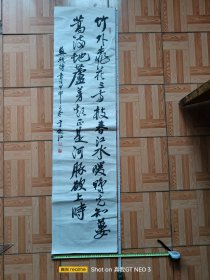 竹外桃花三两枝春江水暖鸭先知蔞
蒿满地蘆芽短正是河豚欲上時
realme
Shot on 真我GT NEO 3